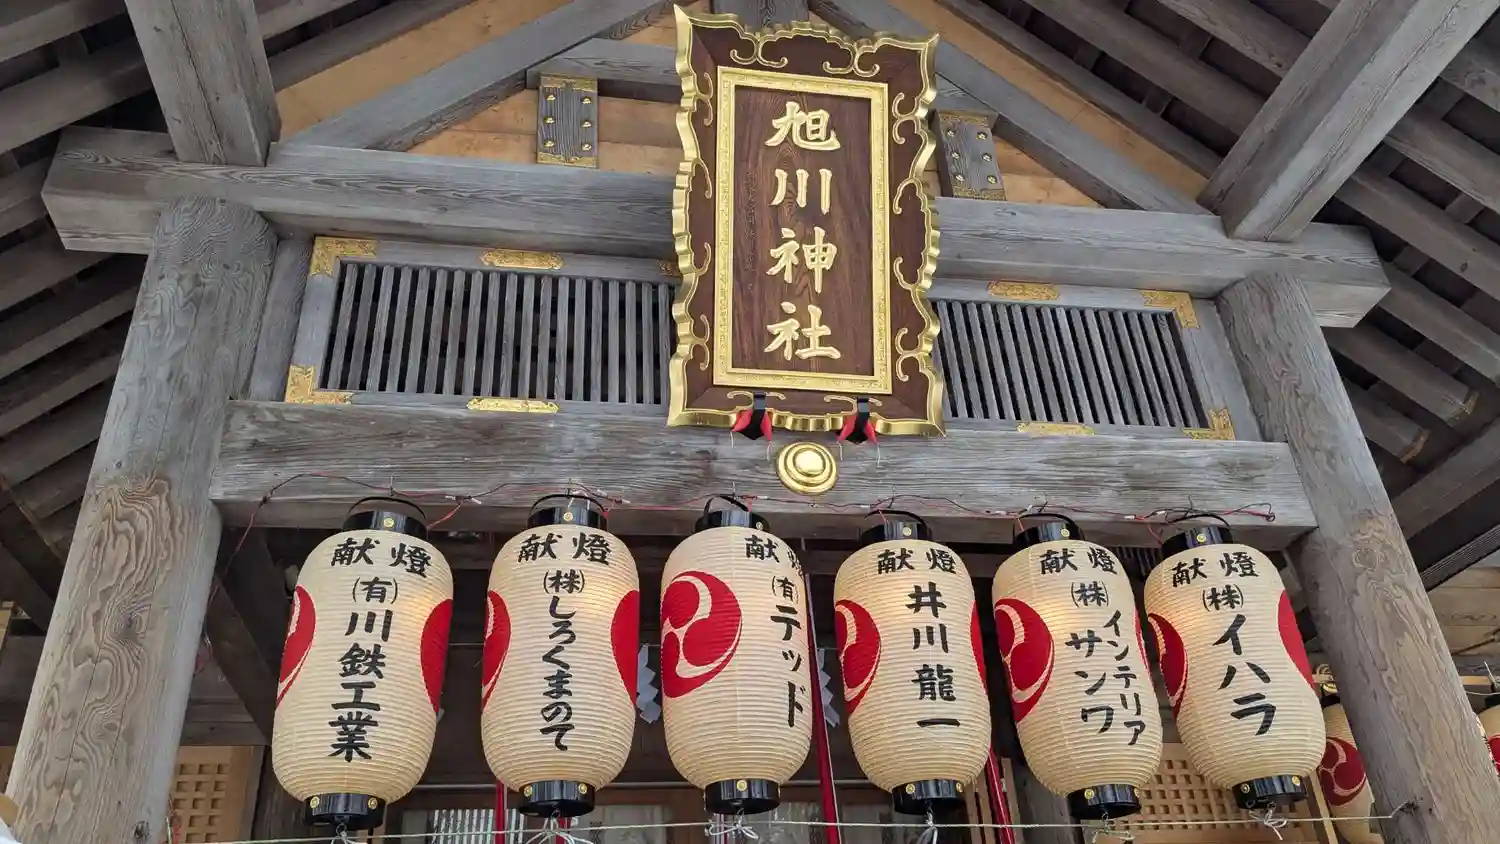 旭川神社
献燈
(有)川鉄工業
献燈
(株)しろくまのて
献燈
(有)テッド
献燈
井川龍一
献燈
(株)インテリア
サンワ
献燈
(株)イハラ